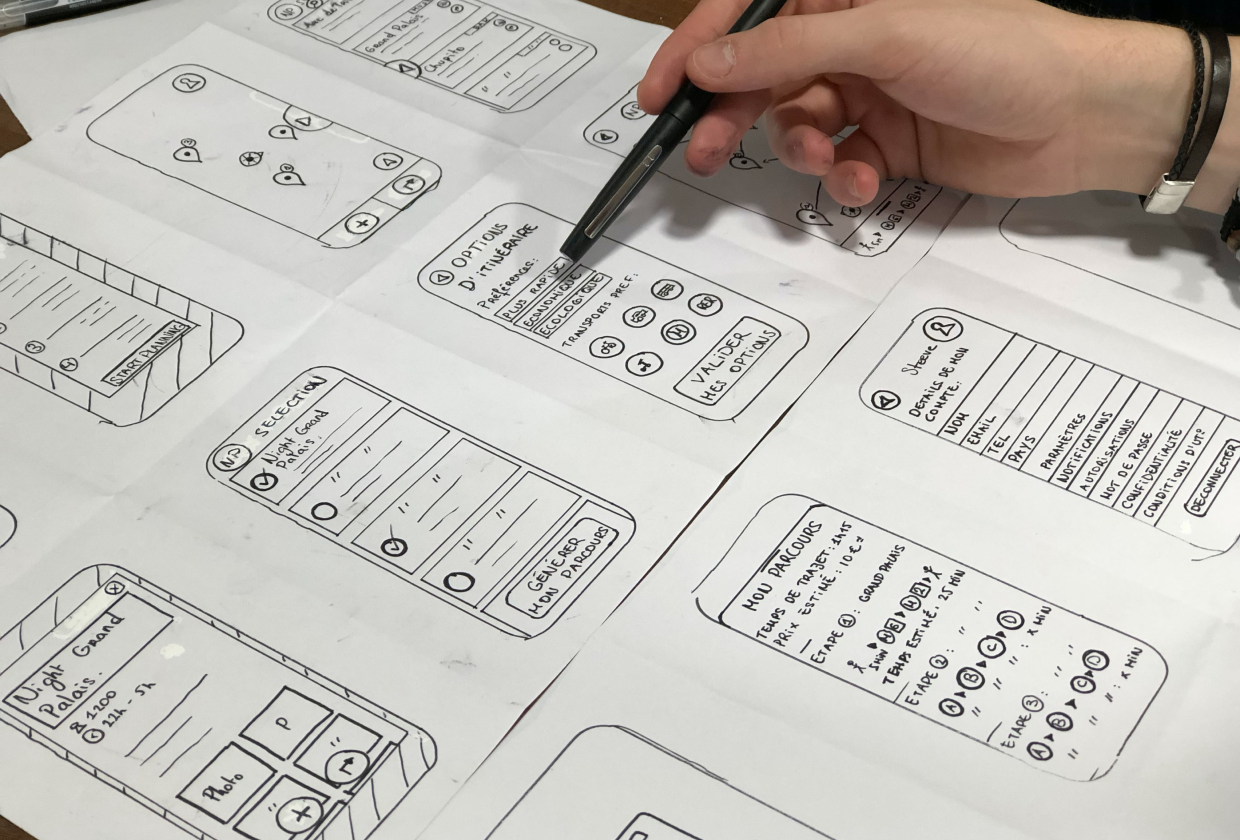 NP
Grand Palais
Chupito
"
3
START PLANNING
OPTIONS
D'ITINÉRAIRE
Préférences:
PLUS RAPIDE
ÉCONOMIQUE
ÉCOLOGIQUE
TRANSPORTS PREF:
RER
VALIDER
MES OPTIONS
NP SELECTION
Night Grand
Palais.
"
"
"
"
"
GÉNÉRER
MON PARCOURS
Steeve
DETAILS DE MON
COMPTE:
NOM
EMAIL
TEL
PAYS
PARAMÈTRES
NOTIFICATIONS
AUTORISATIONS
MOT DE PASSE
CONFIDENTIALITÉ
CONDITIONS D'UT°
DECONNECTER
MON PARCOURS
TEMPS DE TRAJET: 1H15
PRIX ESTIMÉ: 10€
ETAPE 1: GRAND PALAIS
5MIN
TEMPS ESTIMÉ. 25 MIN
ETAPE 2: " "
A B C D
" " : X MIN
ETAPE 3: " "
A B C D
" " : X MIN
Night Grand
Palais.
1200
22h - 5h
P
Photo
"
"